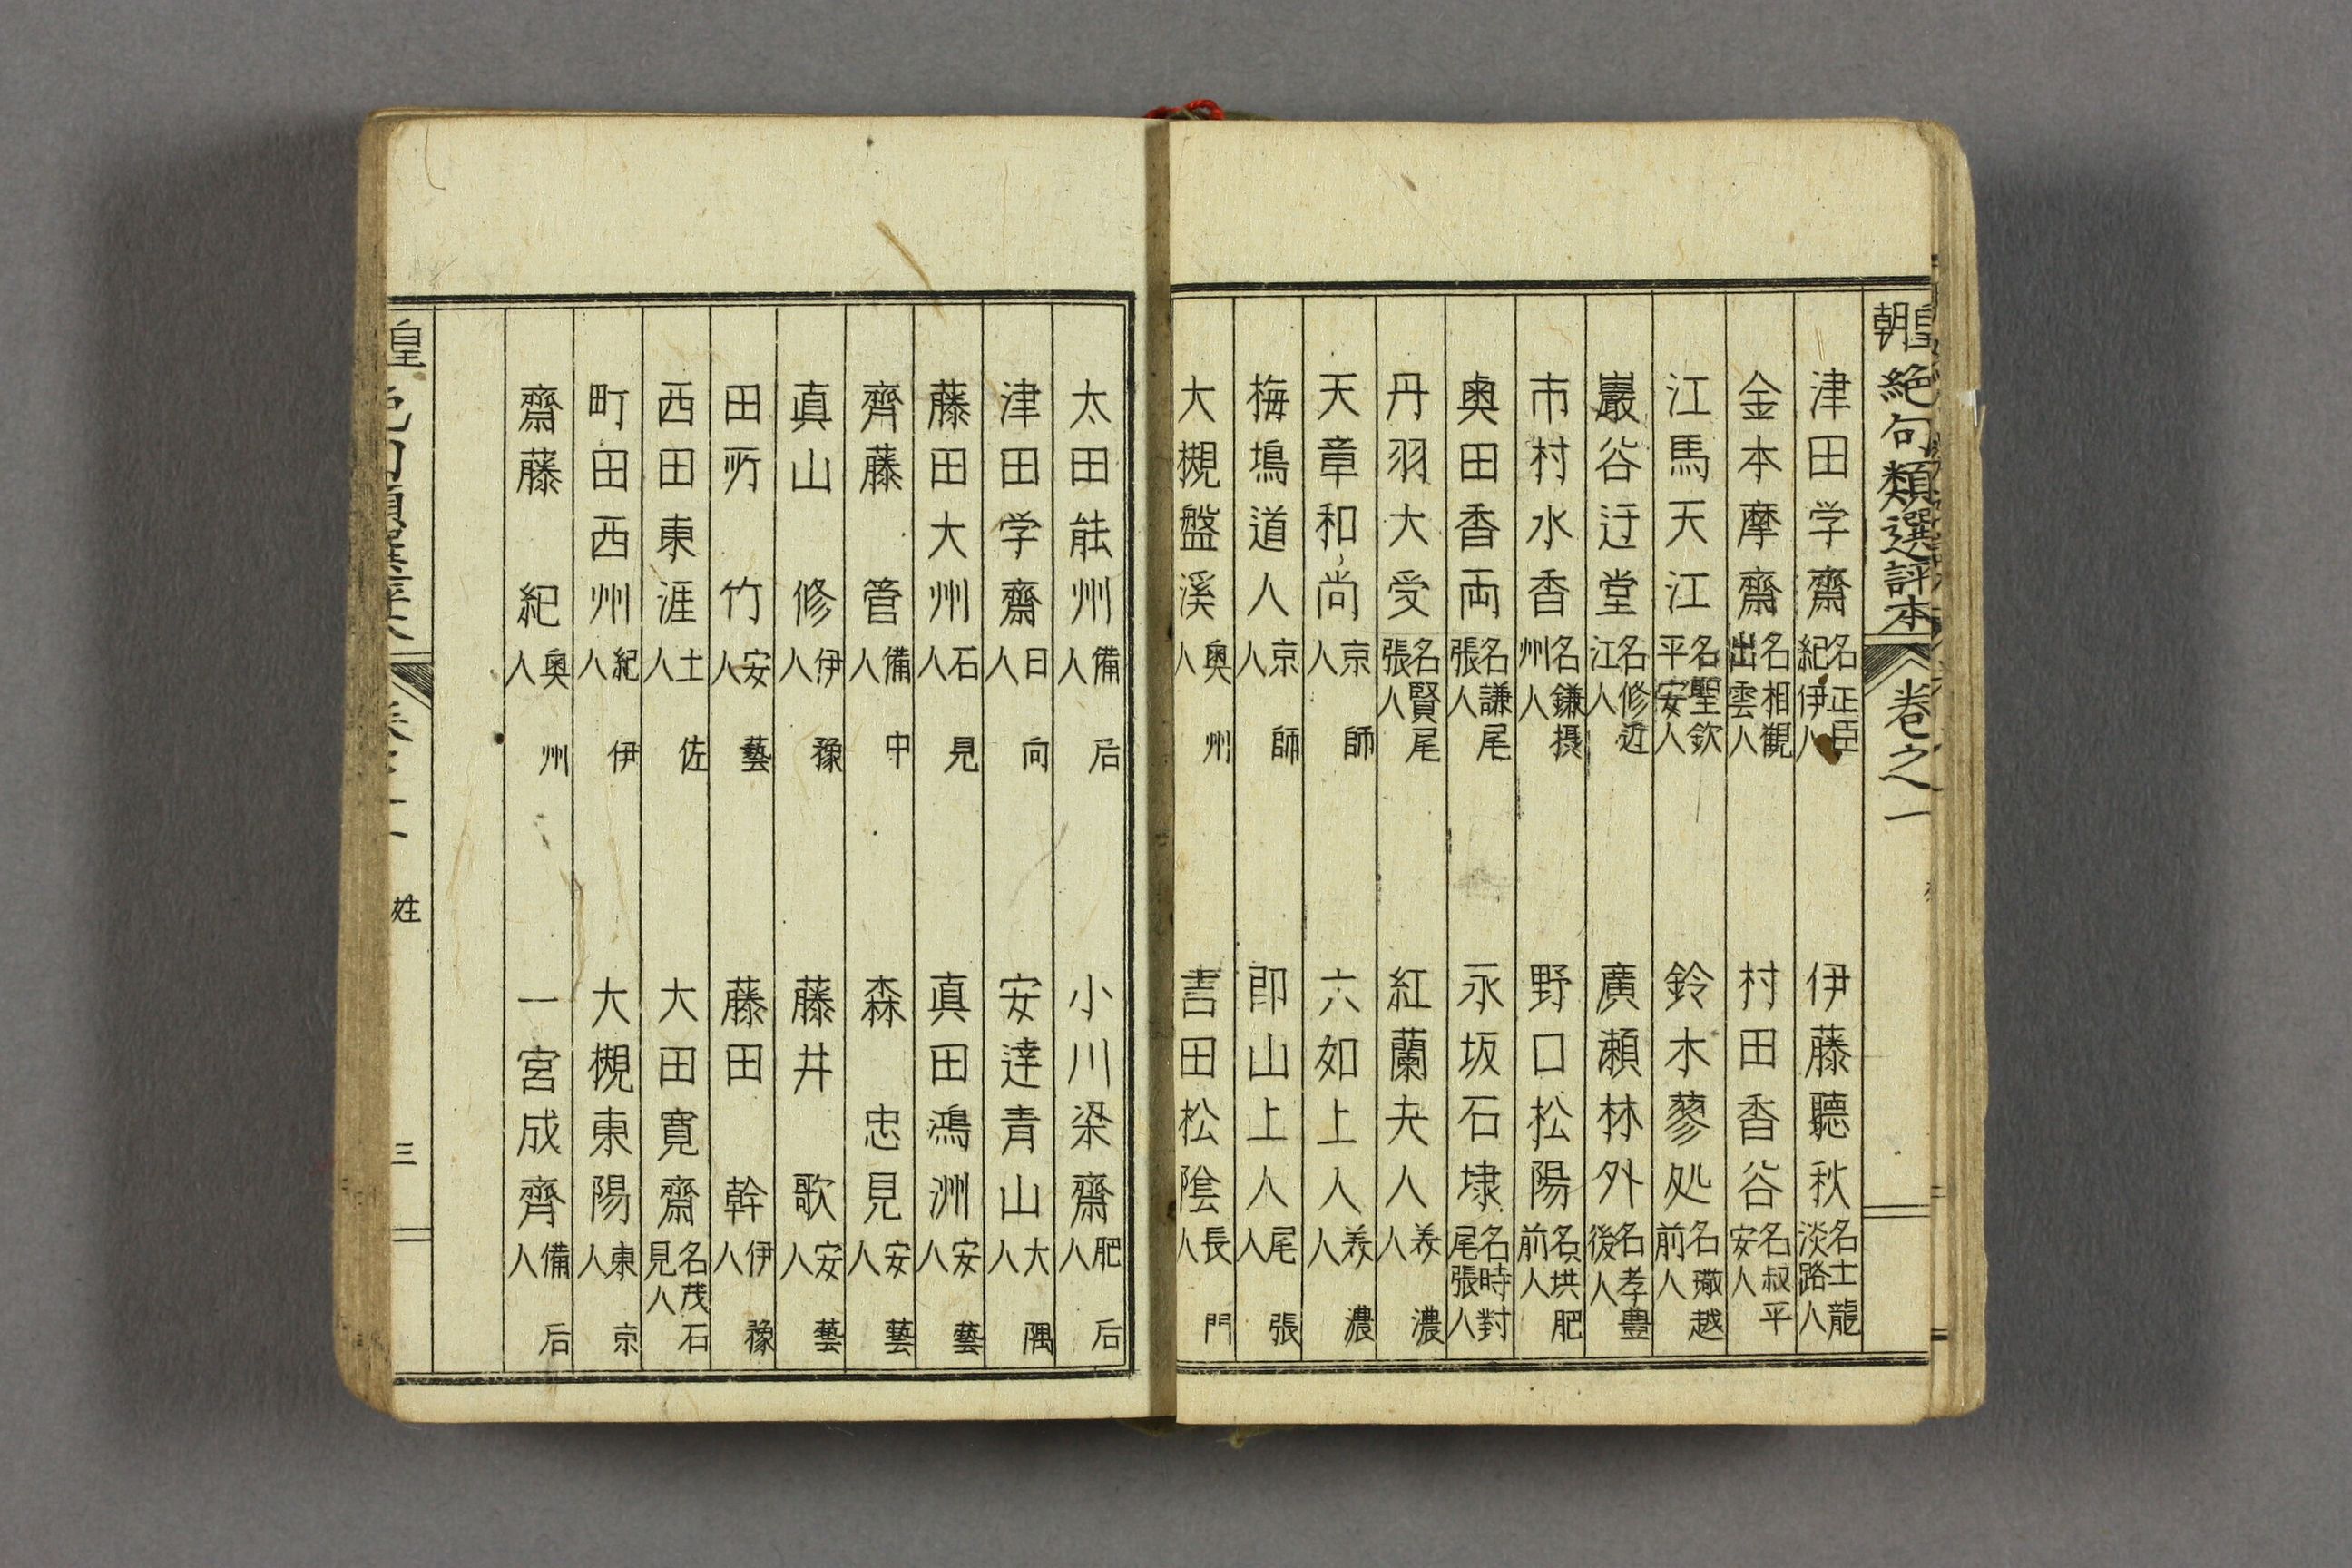 皇朝絶句類選評本 卷之一
津田学齋 名正臣紀伊人
伊藤聽秋 名士龍淡路人
金本摩齋 名相觀出雲人
村田香谷 名叔平安人
江馬天江 名聖欽平安人
鈴木蓼処 名璥越前人
巖谷迂堂 名修近江人
廣瀬林外 名孝豊後人
市村水香 名鎌摂州人
野口松陽 名珙肥前人
奥田香雨 名謙尾張人
永坂石埭 名時對尾張人
丹羽大受 名賢尾張人
紅蘭夫人 美濃人
天章和尚 京師人
六如上人 美濃人
梅塢道人 京師人
即山上人 尾張人
大槻盤溪 奥州人
吉田松陰 長門人
太田䏻州 備后人
小川梁齋 肥后人
津田学齋 日向人
安達青山 大隅人
藤田大州 石見人
真田鴻洲 安藝人
齊藤管 備中人
森忠見 安藝人
真山修 伊豫人
藤井歌 安藝人
田所竹 安藝人
藤田幹 伊豫人
西田東涯 土佐人
大田寛齋 名茂石見人
町田西州 紀伊人
大槻東陽 東京人
齋藤紀 奥州人
一宮成齊 備后人
姓
三